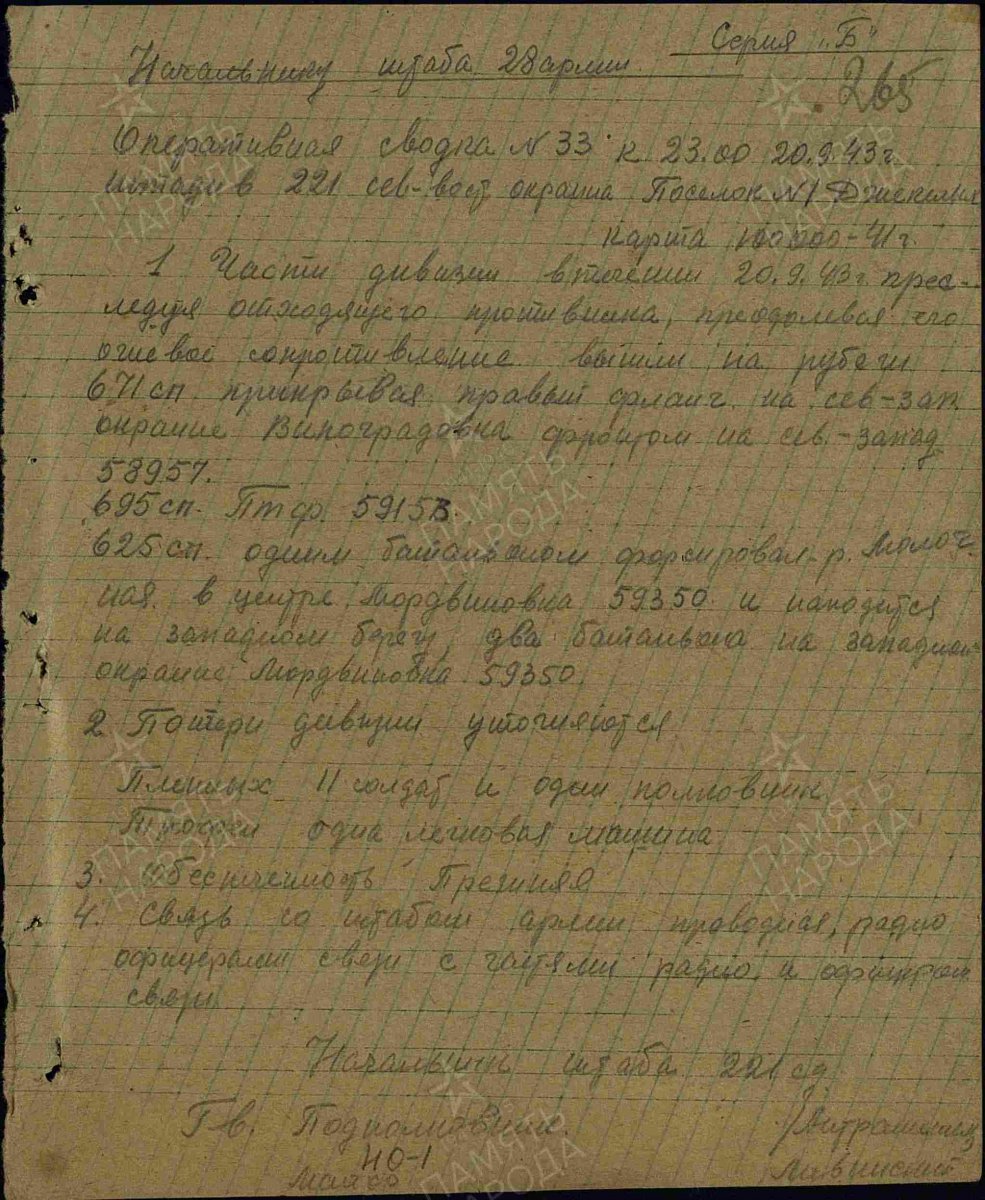 Серия "Б"
Начальнику штаба 28 армии
265
Оперативная сводка N 33 к 23.00 20.9.43 г.
штадив 221 сев-вост окраина Поселок N1
карта 100000-41 г.
1 Части дивизии втечении 20.9.43 г прес-
ледуя отходящего противника, преодолевая его
огневое сопротивление вышли на рубежи
671 сп прикрывая правый фланг на сев-зап
окраине Виноградовка фронтом на сев.-запад
58957.
695 сп. Птф. 5915В.
625 сп. одним батальоном форсировал р. Молоч-
ная в центре Мордвиновка 59350 и находится
на западном берегу, два батальона на западной
окраине Мордвиновка 59350.
2 Потери дивизии уточняются
Пленных 11 солдат и один полковник
Трофеи одна легковая машина
3. Обеспеченность Прежняя
4. Связь со штабом армии проводная, радио
офицерами связи с частями радио и офицерами
связи
Начальник штаба 221 сд
Гв. Подполковник
НО-1
ПАМЯТЬ
НАРОДА
ПАМЯТЬ
НАРОДА
ПАМЯТЬ
НАРОДА
ПАМЯТЬ
НАРОДА
ПАМЯТЬ
НАРОДА
ПАМЯТЬ
НАРОДА